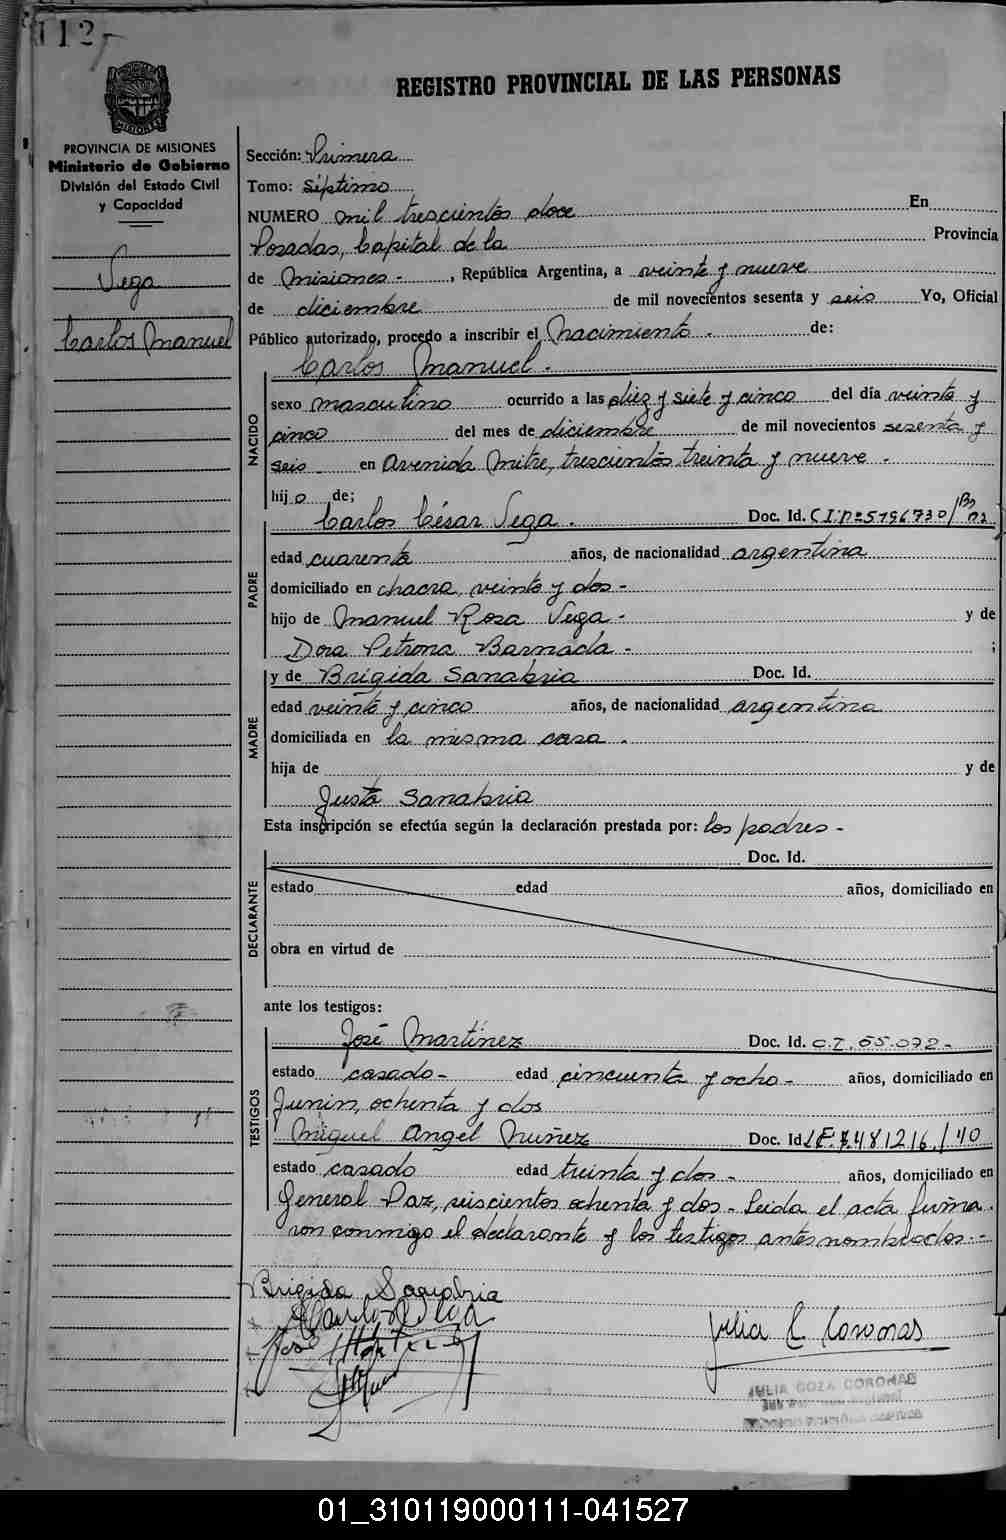 112
REGISTRO PROVINCIAL DE LAS PERSONAS
MISIONES
PROVINCIA DE MISIONES
Ministerio de Gobierno
División del Estado Civil
y Capacidad
Vega
Carlos Manuel
Sección: Primera
Tomo: séptimo
NUMERO mil trescientos doce En
Posadas, Capital de la Provincia
de Misiones - , República Argentina, a veinte y nueve
de diciembre de mil novecientos sesenta y seis Yo, Oficial
Público autorizado, procedo a inscribir el Nacimiento . de:
Carlos Manuel .
NACIDO
sexo masculino ocurrido a las diez y siete y cinco del día veinte y
cinco del mes de diciembre de mil novecientos sesenta y
seis en Avenida Mitre, trescientos treinta y nueve .
hijo de;
PADRE
Carlos César Vega . Doc. Id. C.I.Nº 5196730/
edad cuarenta años, de nacionalidad argentina
domiciliado en chacra, veinte y dos -
hijo de Manuel Rosa Vega - y de
Dora Petrona Barnada - ;
MADRE
y de Brígida Sanabria Doc. Id.
edad veinte y cinco años, de nacionalidad argentina
domiciliada en la misma casa .
hija de y de
Justa Sanabria
Esta inscripción se efectúa según la declaración prestada por: los padres -
DECLARANTE
Doc. Id.
estado edad años, domiciliado en
obra en virtud de
ante los testigos:
TESTIGOS
José Martínez Doc. Id. C.I. 65.072 -
estado casado - edad cincuenta y ocho - años, domiciliado en
Junin, ochenta y dos
Miguel Angel Nuñez Doc. Id L.E. 7.481216/40
estado casado edad treinta y dos - años, domiciliado en
General Paz, seiscientos ochenta y dos - Leida el acta firma.
ron conmigo el declarante y los testigos antes nombrados. -
Brigida Sanabria
Carlos Vega
José Martinez
Julia C Coronas
JULIA COZA CORONAS
01_310119000111-041527